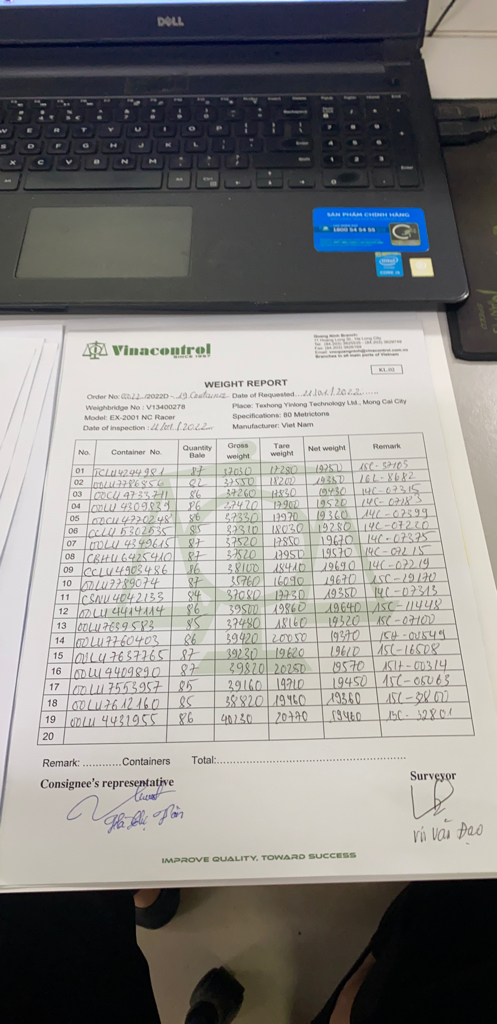 DELL
SẢN PHẨM CHÍNH HÃNG
1800 54 54 55
Vinacontrol
SINCE 1957
Quang Ninh Branch:
Branches in all main ports of Vietnam
WEIGHT REPORT
Order No: /2022D Date of Requested 21/01/2022
Weighbridge No : V13400278 Place: Texhong Yinlong Technology Ltd., Mong Cai City
Model: EX-2001 NC Racer Specifications: 80 Metrictons
Date of inspection: 21/01/2022 Manufacturer: Viet Nam
No. Container No. Quantity Bale Gross weight Tare weight Net weight Remark
01 87 37030 17280 19750
02 OOLU7786856 82 37550 18200 19350 16L-8682
03 86 37260 17830 19430 14C-07315
04 OOLU 4309839 86 37420 17900 19520 14C-07183
05 OOCU4770248 86 37330 17970 19360 14C-07399
06 CCLU 5302535 85 37310 18030 19280 14C-07220
07 OOLU 4349615 87 37520 17850 19670 14C-07375
08 CBHU6425410 87 37520 17950 19570 14C-07215
09 CCLU4903486 86 38100 18410 19690 14C-07219
10 OOLU7789074 87 35760 16090 19670 15C-19170
11 CSNU4042133 84 37080 17730 19350 14C-07313
12 OOLU4414114 86 39500 19860 19640 15C-11448
13 OOLU7639583 85 37480 18160 19320 15C-07100
14 OOLU7760403 86 39420 20050 19370
15 OOLU7637765 87 39230 19620 19610 15C-16508
16 OOLU4409890 87 39820 20250 19570 15H-00314
17 OOLU7553957 85 39160 19710 19450 15C-05063
18 OOLU7612160 85 38820 19460 19360
19 OOLU 4431955 86 40230 20770 19460 15C-32801
20
Remark: ............Containers Total:
Consignee's representative Surveyor
Vi Văn Đạo
IMPROVE QUALITY, TOWARD SUCCESS